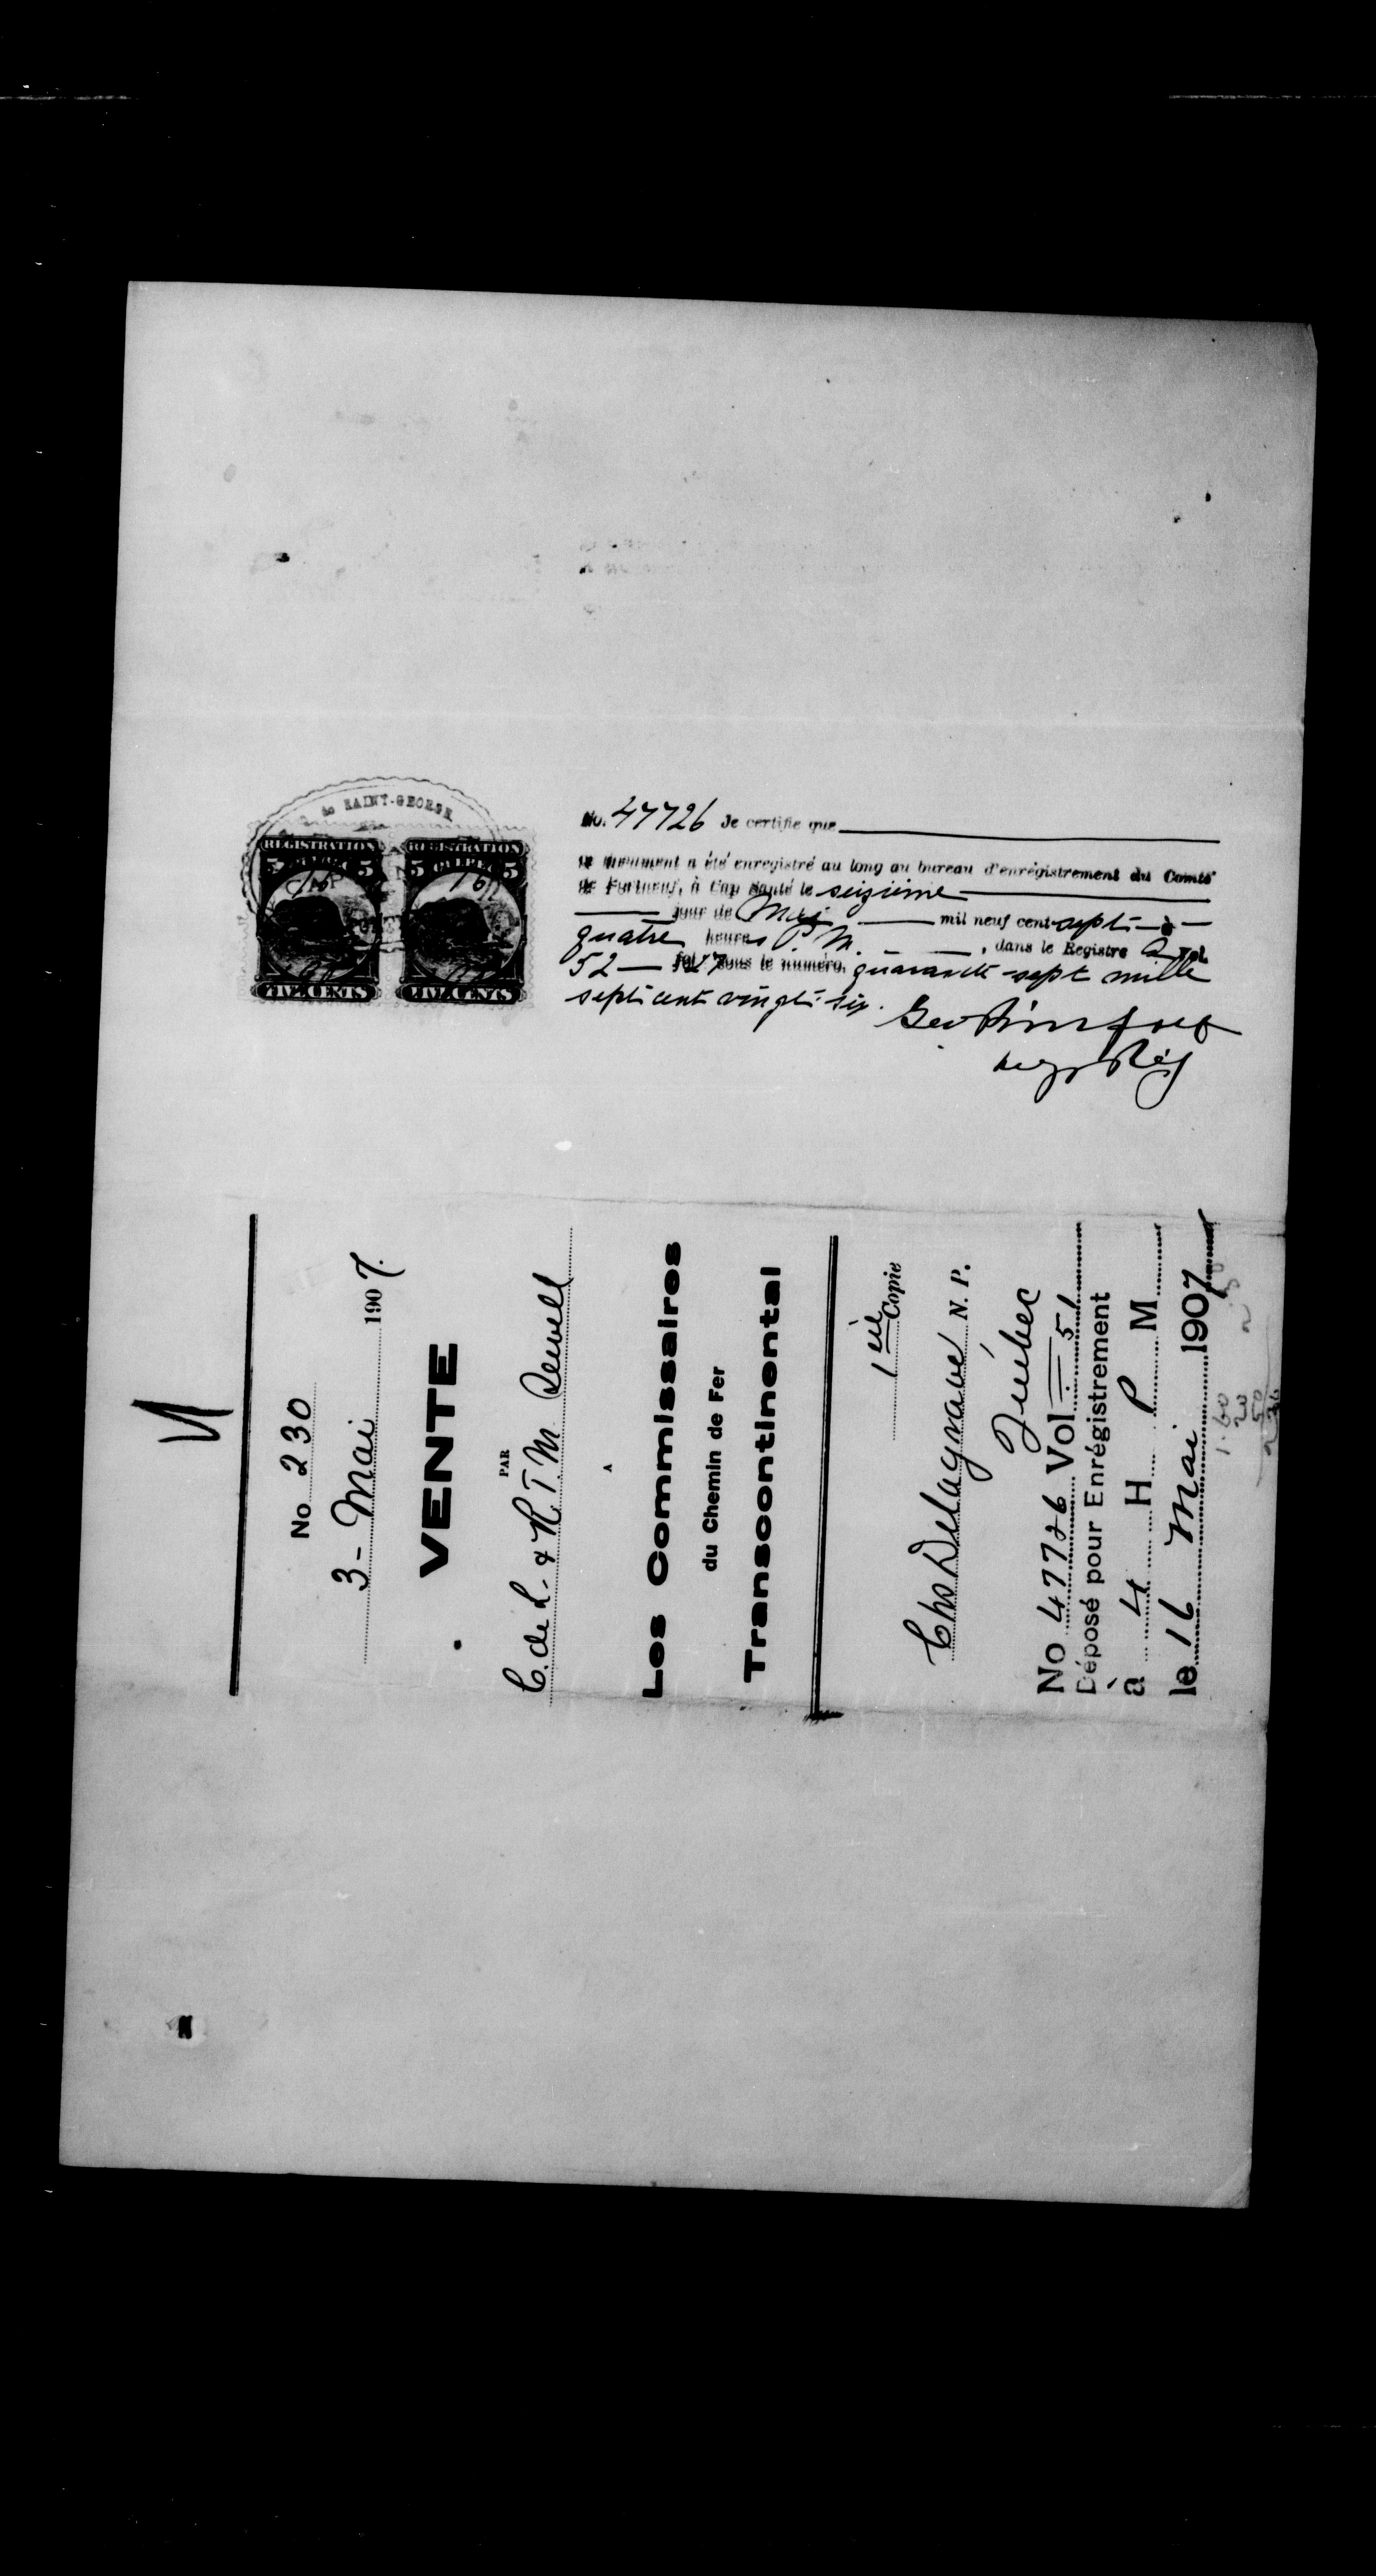 de SAINT-GEORGE
REGISTRATION REGISTRATION
5 5 5 QUEBEC 5
16 16
FIVE CENTS FIVE CENTS
No. 47726 Je certifie que
le document a été enregistré au long au bureau d'enrégistrement du Comté
de Portneuf, à Cap Santé le seizième
jour de Mai mil neuf cent sept à
quatre heures P. M. , dans le Registre Vol.
52 sous le numéro. quarante-sept mille
sept cent vingt-six.
Rég
No 230
3 - Mai 1907.
VENTE
PAR
C. de L. & R. T. M. Sewell
A
Les Commissaires
du Chemin de Fer
Transcontinental
1ière Copie
Chs Delagrave N. P.
Québec
No 47726 Vol 51
Déposé pour Enrégistrement
à 4 H P M
le 16 Mai 1907
1.60